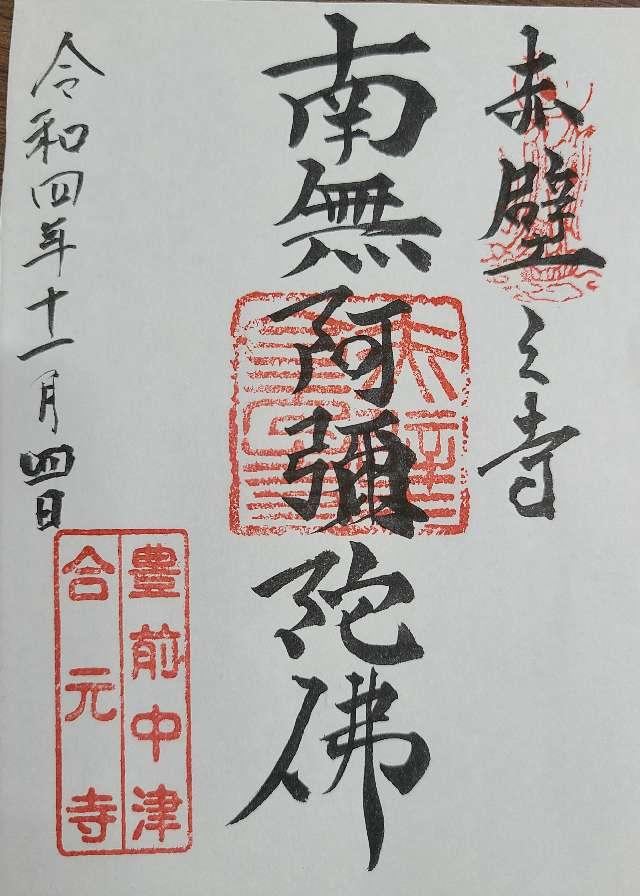 赤壁之寺
南無阿彌陀佛
令和四年十一月四日
豊前中津
合元寺